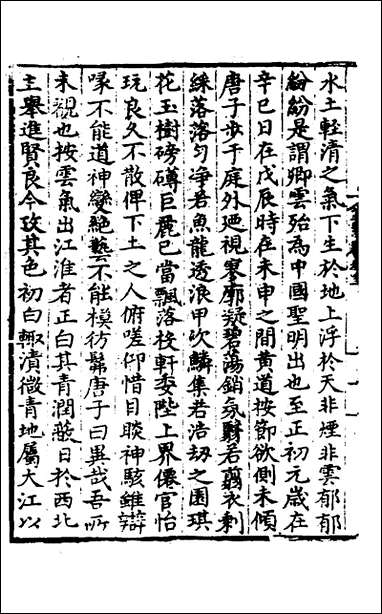 水土輕清之氣下生於地上浮於天非煙非雲郁郁
紛紛是謂卿雲殆為中國聖明出也至正初元歲在
辛巳日在戊辰時在未申之間黄道按節欲側未傾
唐子步于庭外廻視寥廓凝碧蕩銷氛翳若翦衣剩
綵落落匀净若魚龍透浪甲次鱗集若浩刼之圃琪
花玉樹磅礴巨麗已當飄落校軒委陛上界僊官怡
玩良久不散俾下土之人俯嗟仰惜目睒神駭雖辯
喙不能道神變絶藝不能模彷髴唐子曰異哉吾所
未覩也按雲氣出江淮者正白其青潤蔽日於西北
主舉進賢良今攷其色初白輙漬微青地屬大江以